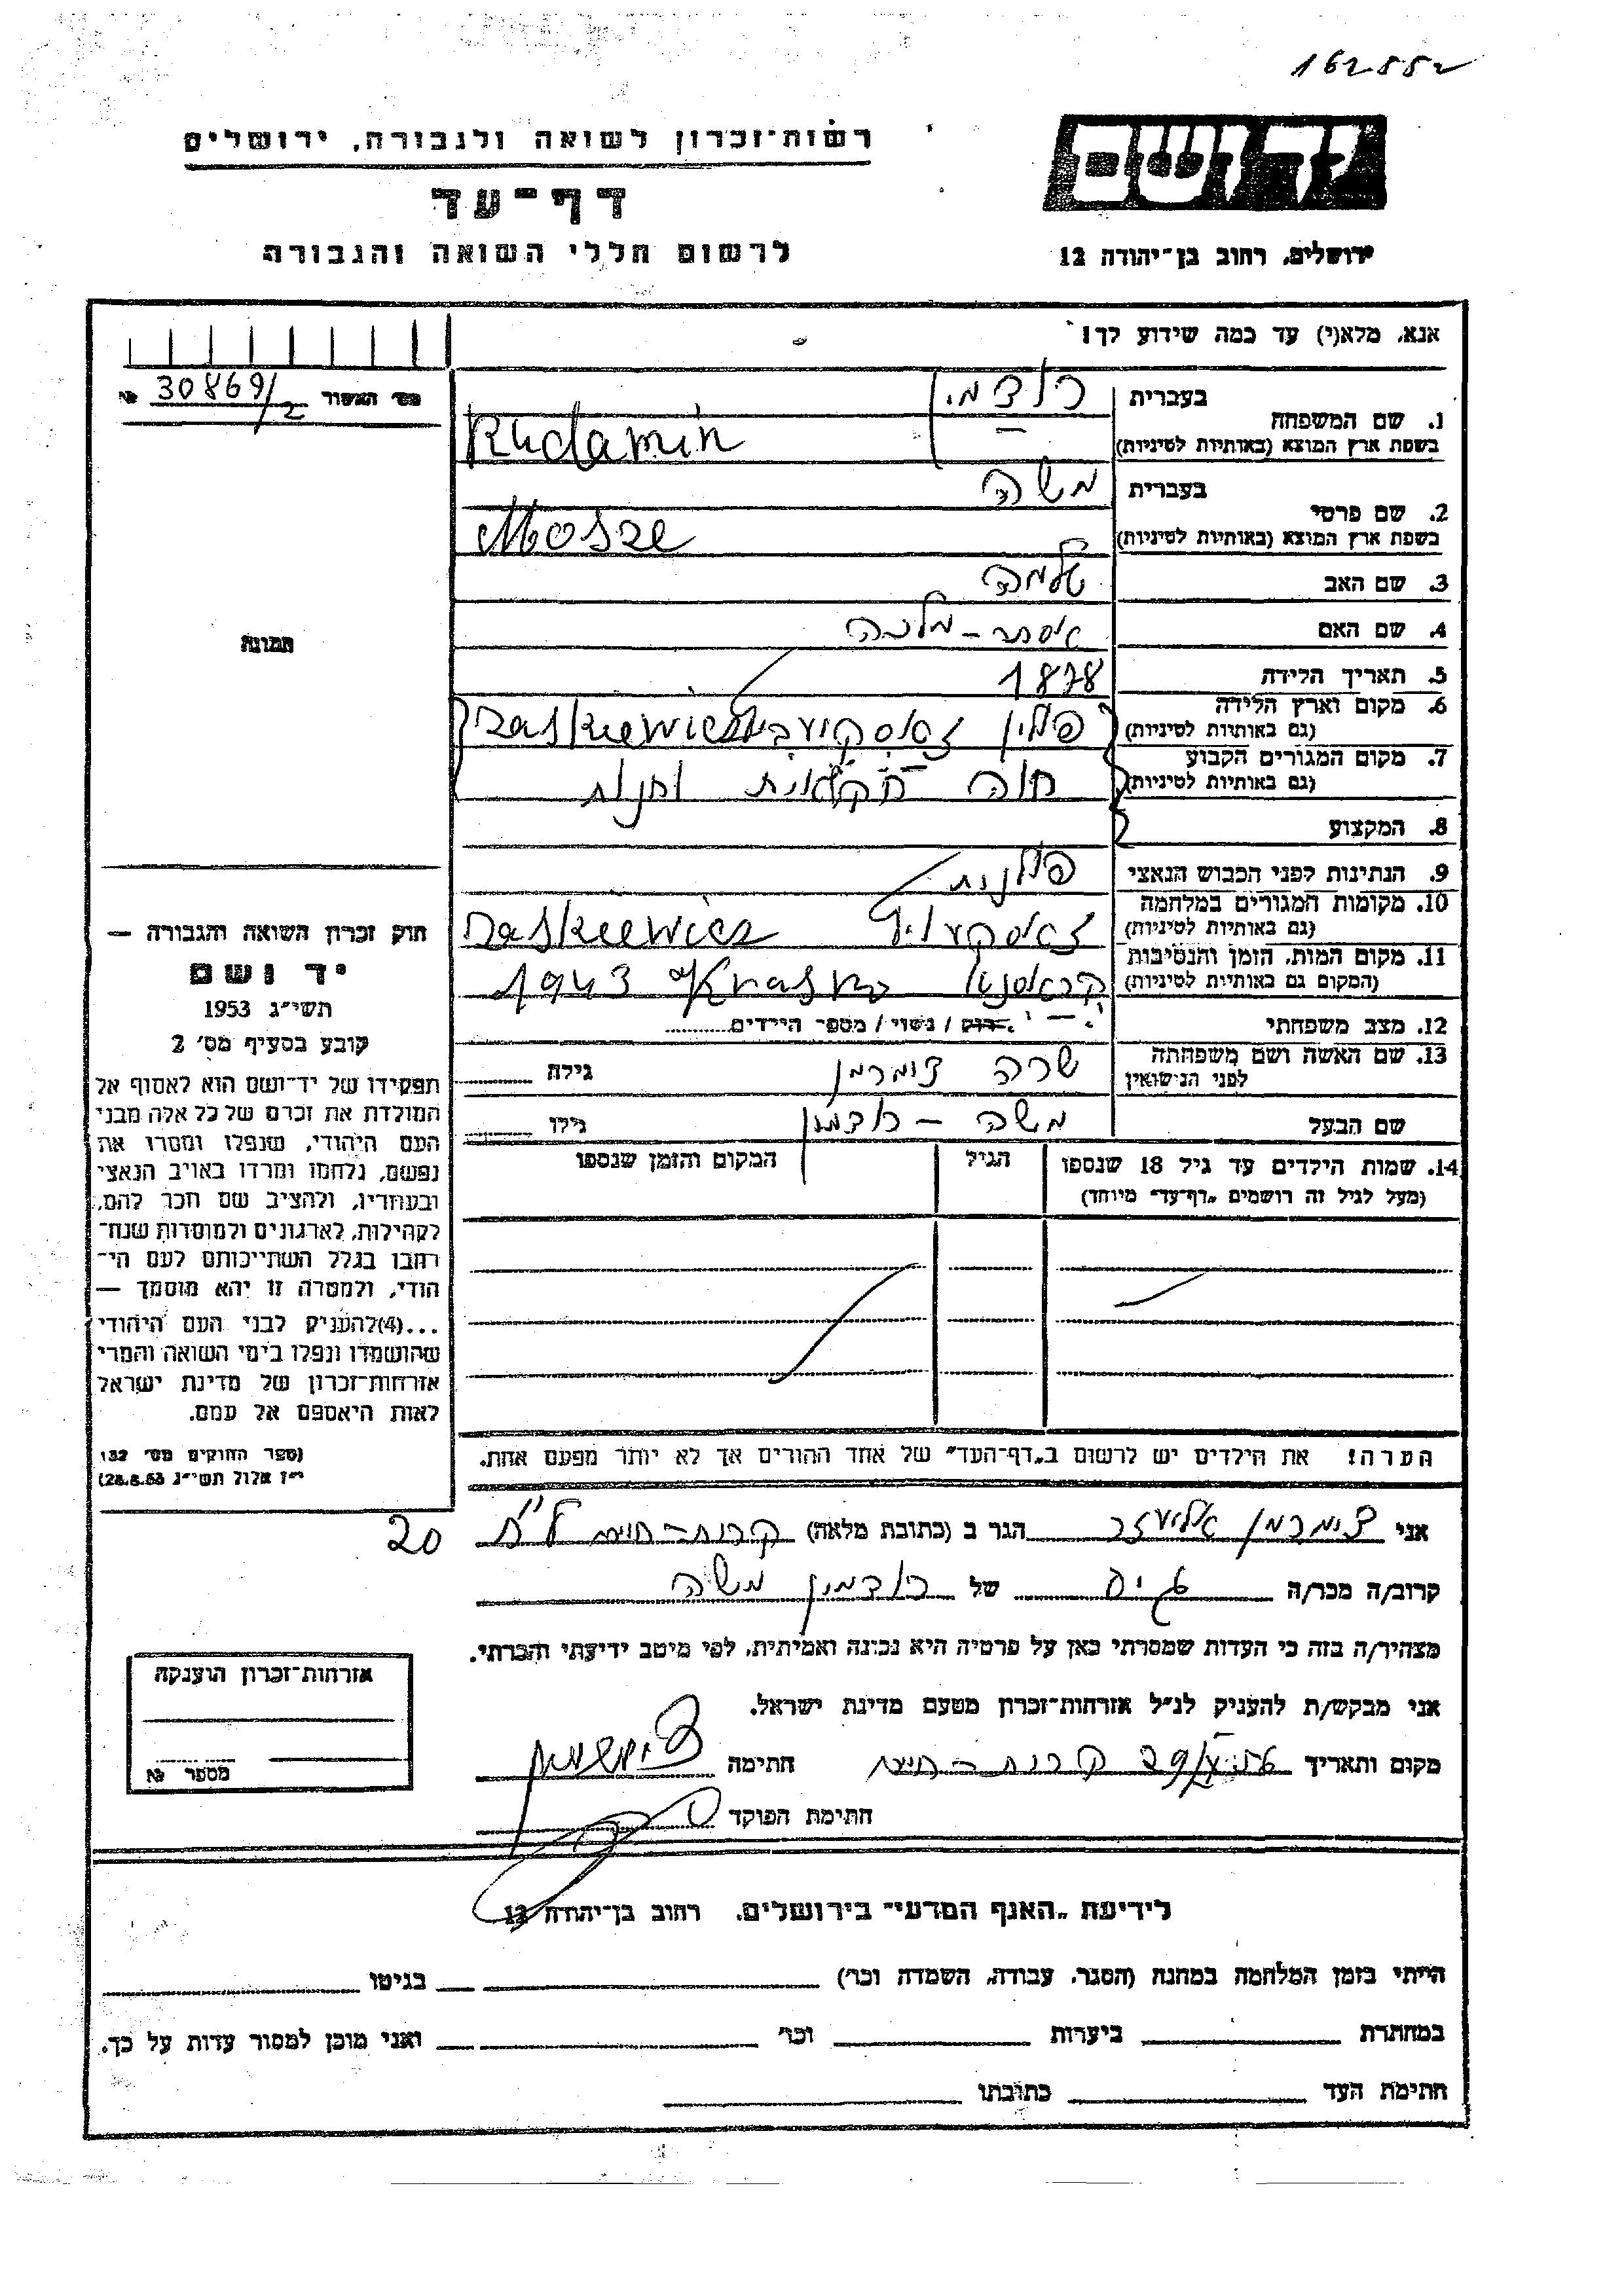 162552
רשות־זכרון לשואה ולגבורה, ירושלים
יד ושם
דף־עד
לרשום חללי השואה והגבורה
ירושלים, רחוב בן־יהודה 12
אנא, מלא(י) עד כמה שידוע לך!
מס׳ האשור 30869/2 №
1. שם המשפחה
בעברית רודמין
בשפת ארץ המוצא (באותיות לטיניות) Rudamin
2. שם פרטי
בעברית משה
בשפת ארץ המוצא (באותיות לטיניות) Mosze
3. שם האב שלמה
4. שם האם אסתר - מלכה
5. תאריך הלידה 1878
6. מקום וארץ הלידה (גם באותיות לטיניות) פולין
7. מקום המגורים הקבוע (גם באותיות לטיניות) חוה חקלאית וחנות
8. המקצוע
9. הנתינות לפני הכבוש הנאצי פולנית
10. מקומות המגורים במלחמה (גם באותיות לטיניות) Daskiewicz
11. מקום המות, הזמן והנסיבות (המקום גם באותיות לטיניות) קראסנא Krasno 1943
12. מצב משפחתי רווק / נשוי / מספר הילדים
13. שם האשה ושם משפחתה לפני הנישואין שרה צימרמן גילה
שם הבעל משה - רודמין גילו
14. שמות הילדים עד גיל 18 שנספו
(מעל לגיל זה רושמים „דף־עד״ מיוחד)
הגיל
המקום והזמן שנספו
תמונה
חוק זכרון השואה והגבורה —
יד ושם
תשי״ג 1953
קובע בסעיף מס׳ 2
תפקידו של יד־ושם הוא לאסוף אל
המולדת את זכרם של כל אלה מבני
העם היהודי, שנפלו ומסרו את
נפשם, נלחמו ומרדו באויב הנאצי
ובעוזריו, ולהציב שם וזכר להם,
לקהילות, לארגונים ולמוסדות שנח־
רבו בגלל השתייכותם לעם הי־
הודי, ולמטרה זו יהא מוסמך —
...(4) להעניק לבני העם היהודי
שהושמדו ונפלו בימי השואה והמרי
אזרחות־זכרון של מדינת ישראל
לאות היאספם אל עמם.
(ספר החוקים מס׳ 132
י״ז אלול תשי״ג 28.8.53)
הערה! את הילדים יש לרשום ב„דף־העד״ של אחד ההורים אך לא יותר מפעם אחת.
אני צימרמן אליעזר הגר ב (כתובת מלאה) קרית - חיים 20
קרוב/ה מכר/ה גיס של רודמין משה
מצהיר/ה בזה כי העדות שמסרתי כאן על פרטיה היא נכונה ואמיתית, לפי מיטב ידיעתי והכרתי.
אני מבקש/ת להעניק לנ״ל אזרחות־זכרון מטעם מדינת ישראל.
מקום ותאריך קרית - חיים חתימה
חתימת הפוקד
אזרחות־זכרון הוענקה
מספר №
לידיעת „האגף המדעי״ בירושלים, רחוב בן־יהודה 12
הייתי בזמן המלחמה במחנה (הסגר, עבודה, השמדה וכו׳) בגיטו
במחתרת ביערות וכו׳ ואני מוכן למסור עדות על כך.
חתימת העד כתובתו